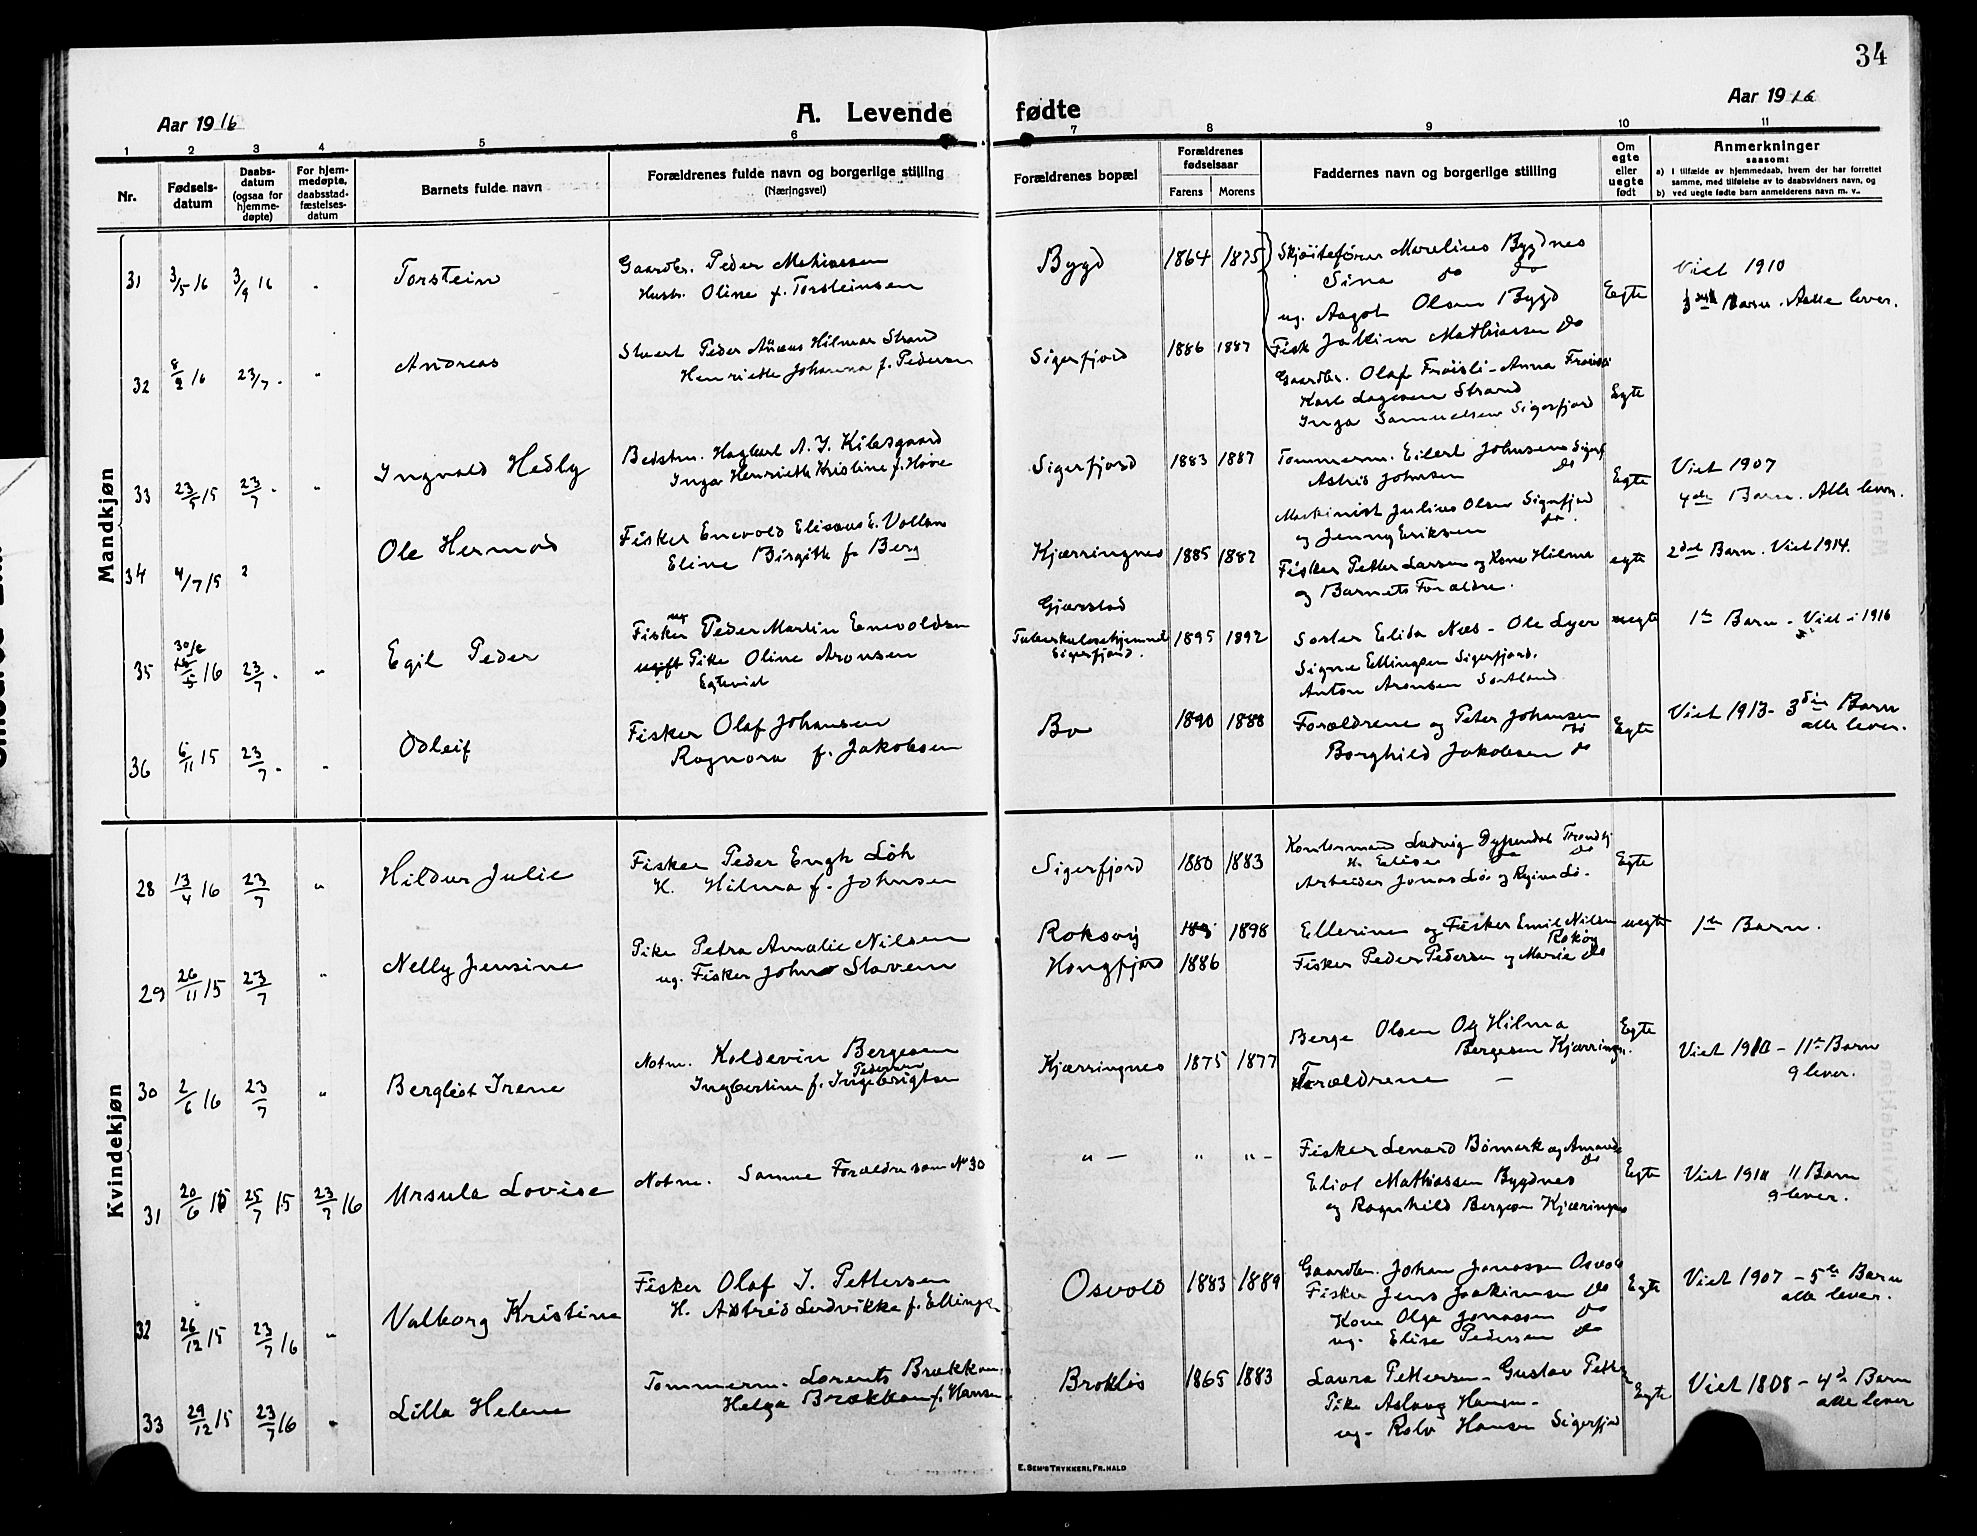 34
Aar 1916
A. Levende fødte
Aar 1916
1 2 3 4 5 6 7 8 9 10 11
Nr.
Fødsels-
datum
Daabs-
datum
(ogsaa for
hjemme-
døpte)
For hjem-
medøpte,
daabsstad-
fæstelses-
datum
Barnets fulde navn
Forældrenes fulde navn og borgerlige stilling
(Næringsvei)
Forældrenes bopæl
Forældrenes
fødselsaar
Farens Morens
Faddernes navn og borgerlige stilling
Om
egte
eller
uegte
født
Anmerkninger
saasom:
a) I tilfælde av hjemmedaab, hvem der har forrettet
samme, med tilføielse av to daabsvidners navn, og
b) ved uegte fødte barn anmelderens navn m. v.
Mandkjøn
31 3/5 16 3/9 16 Torstein
Gaardbr. Peder Mathiassen
Hustr. Oline f. Torsteinsen
Bygd 1864 1875
Skjøitefører Marelius Bygdnes
Sina do do
ug. Aagot Olsen Bygd
Fisk Jakim Mathiassen do
Egte
Viet 1910
Barn. Alle lever.
32 8/2 16 23/7 " Andreas
Peder Hilmar Strand
Henriette Johanna f. Pedersen
Sigerfjord 1886 1887
Gaardbr. Olaf Frøisli - Anna Frøisli
Karl Strand
Inga Samuelsen Sigerfjord
Egte
33 23/5 15 23/7 " Ingvald Hedly
Bedstm. Hagbart A. J. Kilesgaard
Inga Henriette Kristine f. Høve
Sigerfjord 1883 1887
Tømmerm. Eilert Johnsen Sigerf
Astrid Johnsen do
Maskinist Julius Olsen Sigerfjord
og Jenny Eriksen do.
Egte
Viet 1907
4de Barn. Alle lever.
34 4/7 15 Ole Hermod
Fisker Enevold Elisæus E. Vollan
Eline Birgitte f. Berg
Kjærringnes 1885 1887
Fisker Petter Larsen og Kone Hilma
og Barnets Forældre.
egte
2det Barn. Viet 1914.
35 16 23/7 " Egil Peder
ug
Fisker Peder Martin Enevoldsen
ugift Pike Oline Aronsen
Egteviet
Gjærstad
Tuberkulosehjemmet
Sigerfjord.
1895 1892
Søster Elida Næs - Ole Lyer
Signe Ellingsen Sigerfjord.
Anton Aronsen Sortland
uegte
1te Barn - Viet i 1916
36 6/11 15 23/7 " Odleif
Fisker Olaf Johansen
Ragnora f. Jakobsen
Bø 1890 1888
Forældrene og Peter Johansen
Borghild Jakobsen do
Egte
Viet 1913 - 3die Barn
alle lever.
Kvindekjøn
28 13/4 16 23/7 " Hildur Julie
Fisker Peder Engh Löh
H. Hilma f. Johnsen
Sigerfjord 1880 1883
Kontormand Ludvig Trondhj
H. Elise do
Arbeider Jonas Lö og Regine Lö.
Egte
29 26/11 15 23/7 " Nelly Jensine
Pike Petra Amalie Nilsen
ug. Fisker John Slavem
Roksøy 1898
Hongfjord 1886
Ellerine og Fisker Emil Nilsen
Rokøy
Fisker Peder Pedersen og Marie do
uegte
1te Barn.
30 2/6 16 23/7 " Bergliot Irene
Notm. Koldevin Bergesen
Pedersen
Ingbertine f. Ingebrigtsen
Kjærringnes 1875 1877
Berge Olsen Og Hilma
Bergesen Kjærringn.
Forældrene —
Egte
Viet 1910 - 11te Barn
9 lever.
31 20/6 15 25/7 15 23/7 16 Ursula Lovise
Notm. Samme Forældre som No 30
" — " " —
Fisker Lenard Bømark og Amanda
do
Eliot Mathiassen Bygdnes
og Ragnhild Bergesen Kjæringnes
Egte
Viet 1910 11 Barn
9 lever.
32 26/12 15 23/7 16 " Valborg Kristine
Fisker Olaf J. Pettersen
H. Astrid Ludvikke f. Ellingsen
Osvold 1883 1889
Gaardbr. Johan Jonassen Osvold
Fisker Jens Joakimsen do
Kone Olga Jonassen do
ug. Elise Pedersen do
Egte
Viet 1907 - 5te Barn
alle lever.
33 29/12 15 23/7 16 " Lilla Helene
Tømmerm. Lorents Brækkan
Helga Brækkan f. Hansen
Brokløs 1865 1883
Laura Pettersen - Gustav Petters
Pike Aslaug Hansen -
ug - Rolv Hansen Sigerfjord
Egte
Viet 1808 - 4de Barn
alle lever
E. SEM'S TRYKKERI, FR.HALD